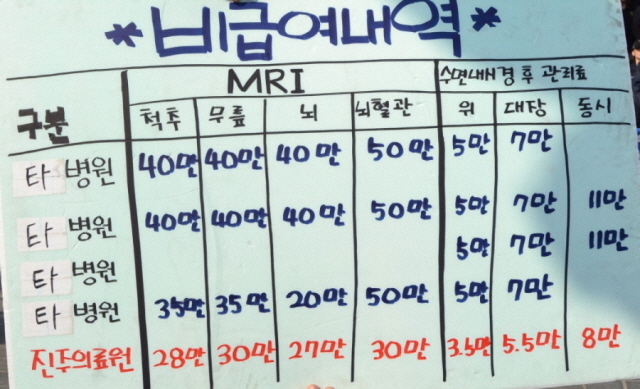 *비급여내역*
MRI 수면내시경 후 관리료
구분 척추 무릎 뇌 뇌혈관 위 대장 동시
타 병원 40만 40만 40만 50만 5만 7만
타 병원 40만 40만 40만 50만 5만 7만 11만
타 병원 5만 7만 11만
타 병원 35만 35만 20만 50만 5만 7만
진주의료원 28만 30만 27만 30만 3.5만 5.5만 8만